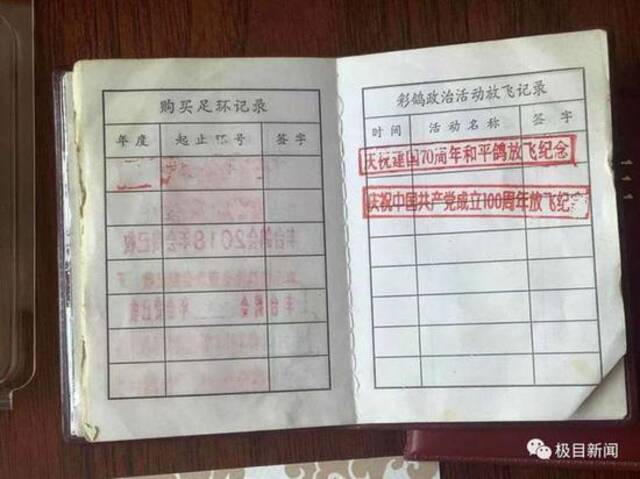 购买足环记录
年度 起止环号 签字
丰台鸽会2018年会费已收
彩鸽政治活动放飞记录
时间 活动名称 签字
庆祝建国70周年和平鸽放飞纪念
庆祝中国共产党成立100周年放飞纪念
极目新闻